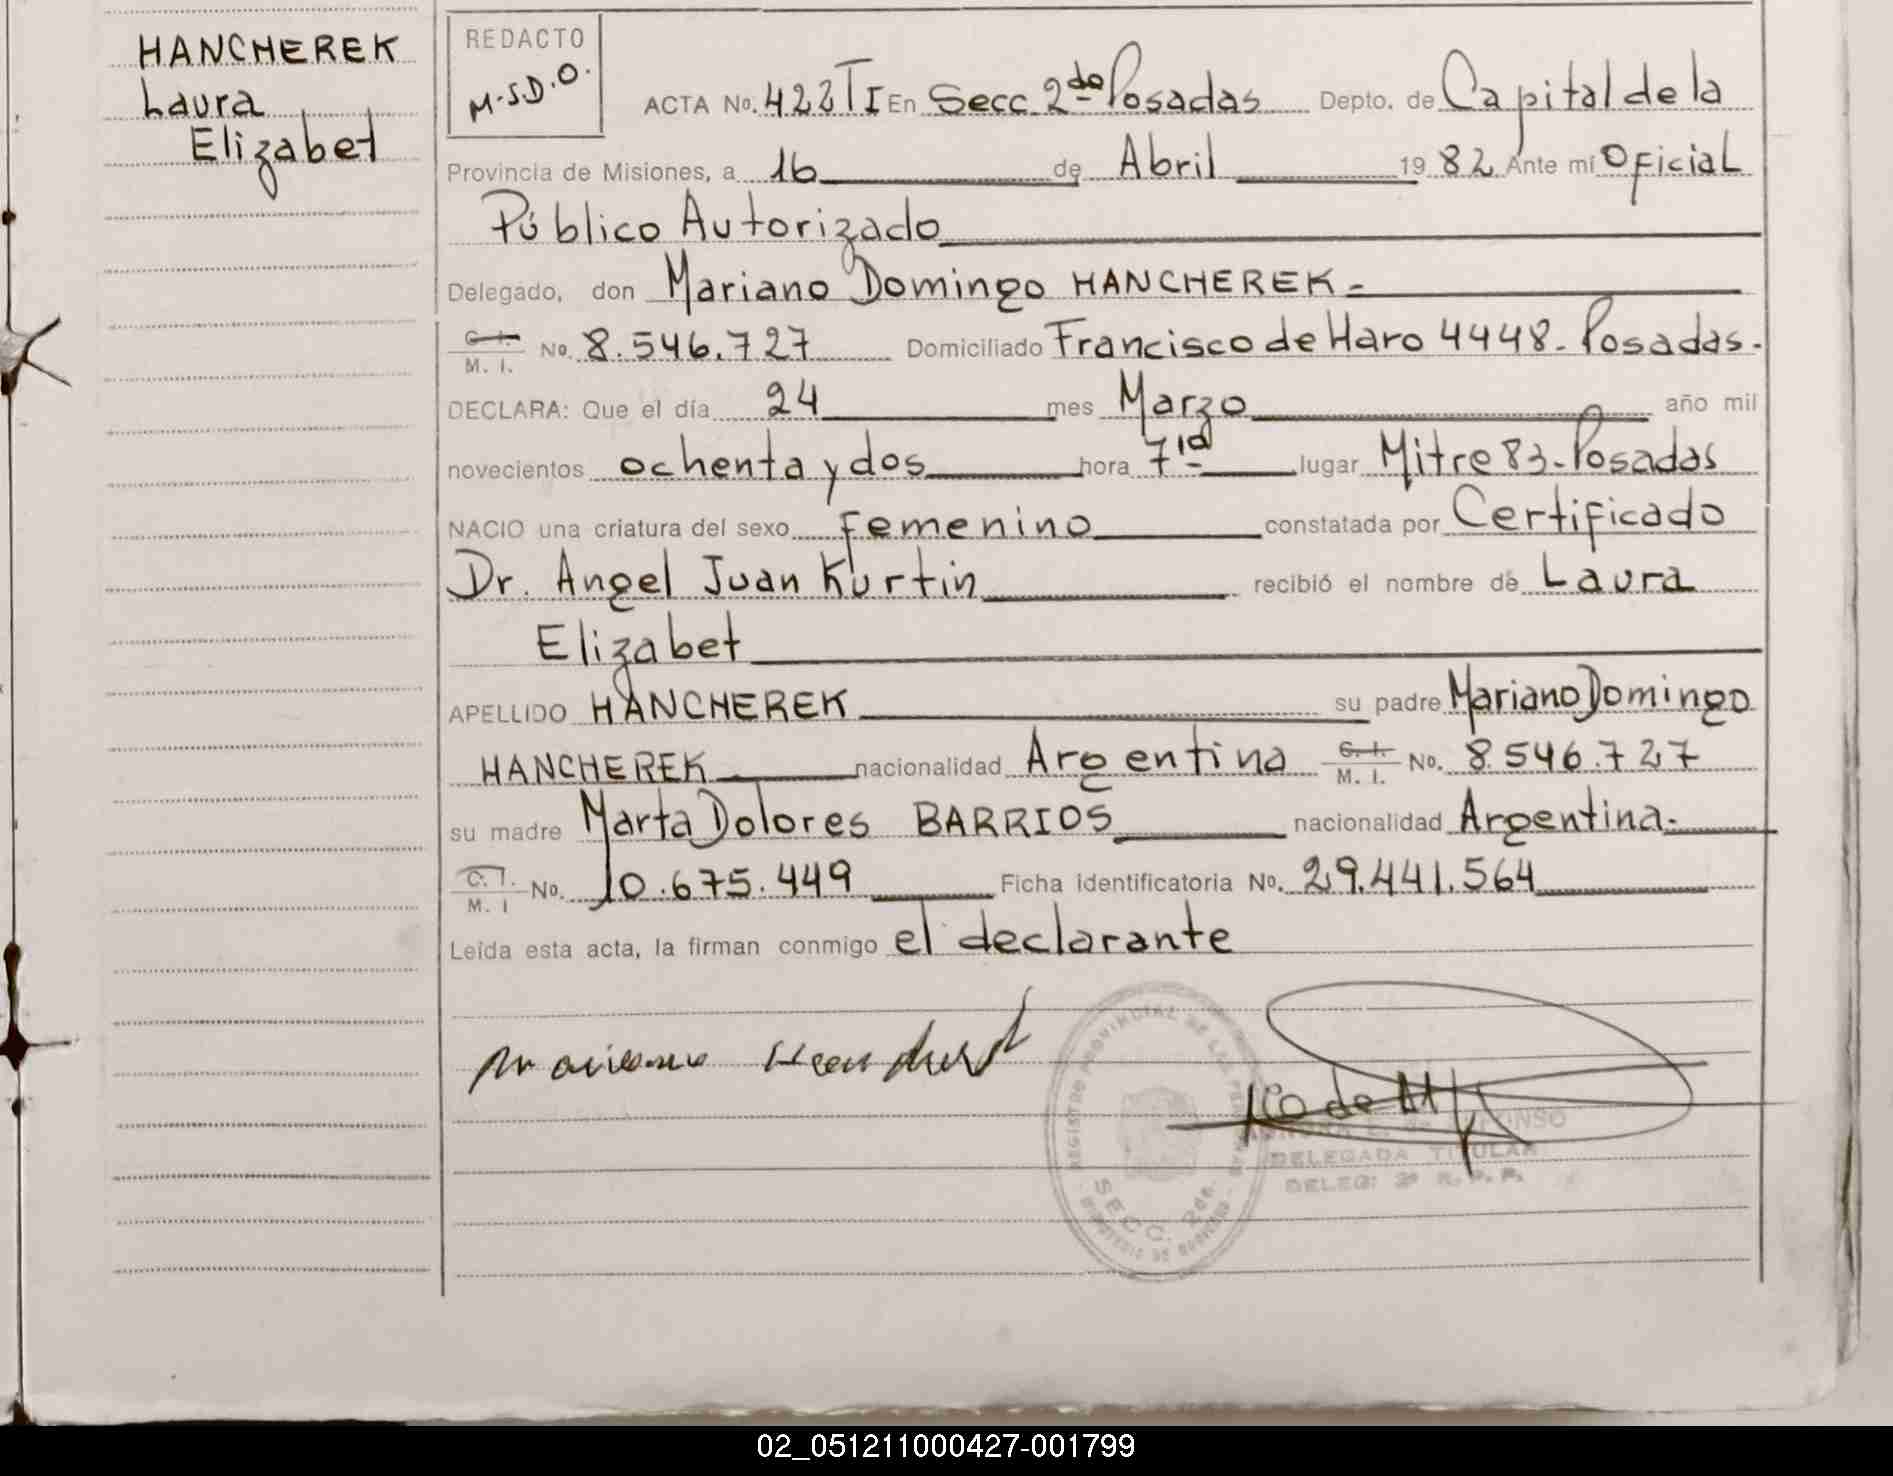 HANCHEREK
Laura
Elizabet
REDACTO
M.S.D.O.
ACTA No. 422 T I En Secc. 2da Posadas Depto. de Capital de la
Provincia de Misiones, a 16 de Abril 1982 Ante mí Oficial
Público Autorizado
Delegado, don Mariano Domingo HANCHEREK.-
C. I. / M. I. No. 8.546.727 Domiciliado Francisco de Haro 4448. Posadas.
DECLARA: Que el día 24 mes Marzo año mil
novecientos ochenta y dos hora 7 lugar Mitre 83-Posadas
NACIO una criatura del sexo Femenino constatada por Certificado
Dr. Angel Juan Kurtin recibió el nombre de Laura
Elizabet
APELLIDO HANCHEREK su padre Mariano Domingo
HANCHEREK nacionalidad Argentina C. I. / M. I. No. 8.546.727
su madre Marta Dolores BARRIOS nacionalidad Argentina.
C. I. / M. I No. 10.675.449 Ficha identificatoria No. 29.441.564
Leída esta acta, la firman conmigo el declarante
REGISTRO PROVINCIAL DE LAS PERSONAS
SECC. 2da.
MINISTERIO DE GOBIERNO
DELEGADA TITULAR
DELEG: 2ª R. P. P.
02_051211000427-001799